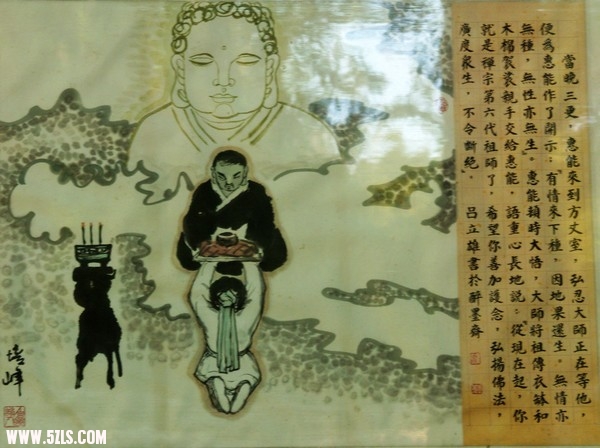 當晚三更，惠能來到方丈室，弘忍大師正在等他，
便為惠能作了開示：“有情來下種，因地果還生。無情亦
無種，無性亦無生”。惠能頓時大悟，大師將祖傳衣缽和
木棉袈裟親手交給惠能，語重心長地說：“從現在起，你
就是禪宗第六代祖師了，希望你善加護念，弘揚佛法，
廣度眾生，不令斷絕”。 呂立雄書於醉墨齋
培峰
WWW.5ZLS.COM